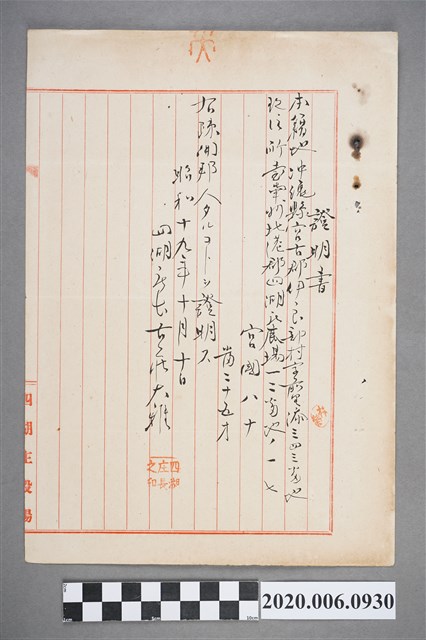 證明書
本籍地 沖繩縣宮古郡伊良部村字前里添三四三番地
現住所 臺南州北港郡四湖庄廣場一二番地ノ一七
宮國八十
當二十五才
右ハ內地人タルコトヲ證明ス
昭和十九年十月十日
四湖庄長
四湖庄長之印
四湖庄役場
1cm
5cm
10cm
2020.006.0930